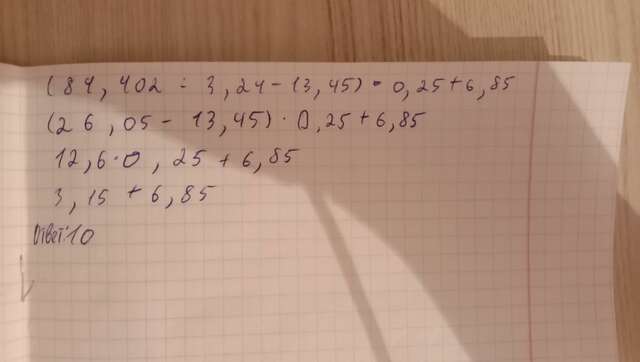 (84,402 : 3,24 - 13,45) · 0,25 + 6,85
(26,05 - 13,45) · 0,25 + 6,85
12,6 · 0,25 + 6,85
3,15 + 6,85
Ответ: 10